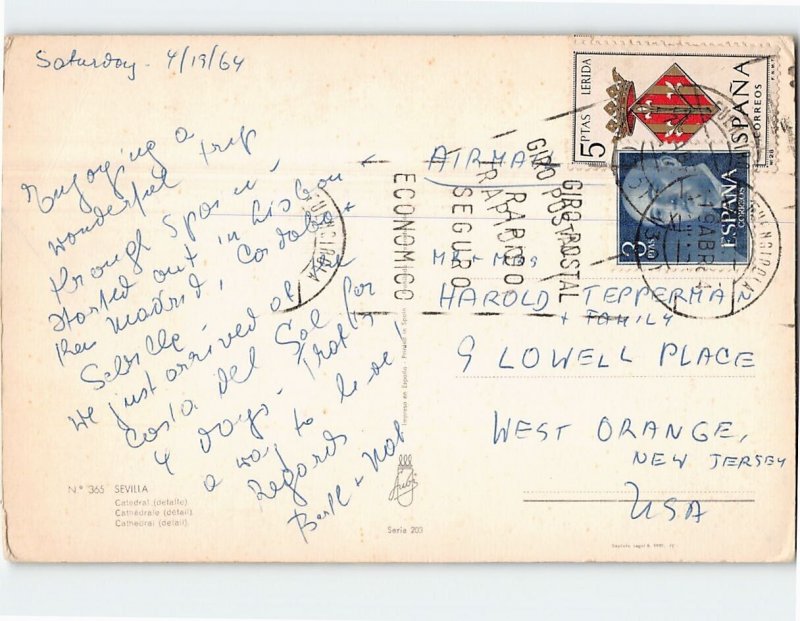 Saturday - 4/19/64
Enjoying a
wonderful trip
through Spain -
Started out in Lisbon
then Madrid, Cordoba +
Seville -
We just arrived at the
Costa del Sol for
4 days - That's
a way to be at
Regards
+ Nat
AIRMAIL
MR + MRS
HAROLD TEPPERMAN
+ FAMILY
9 LOWELL PLACE
WEST ORANGE,
NEW JERSEY
USA
5 PTAS LERIDA
ESPAÑA
CORREOS
3 PTAS
ESPAÑA
CORREOS
GIRO POSTAL
GIRO POSTAL
RAPIDO
SEGURO
ECONOMICO
FUENGIROLA
Nº 365 SEVILLA
Catedral (detalle)
Cathédrale (détail)
Cathedral (detail)
Impreso en España - Printed in Spain
Seria 203